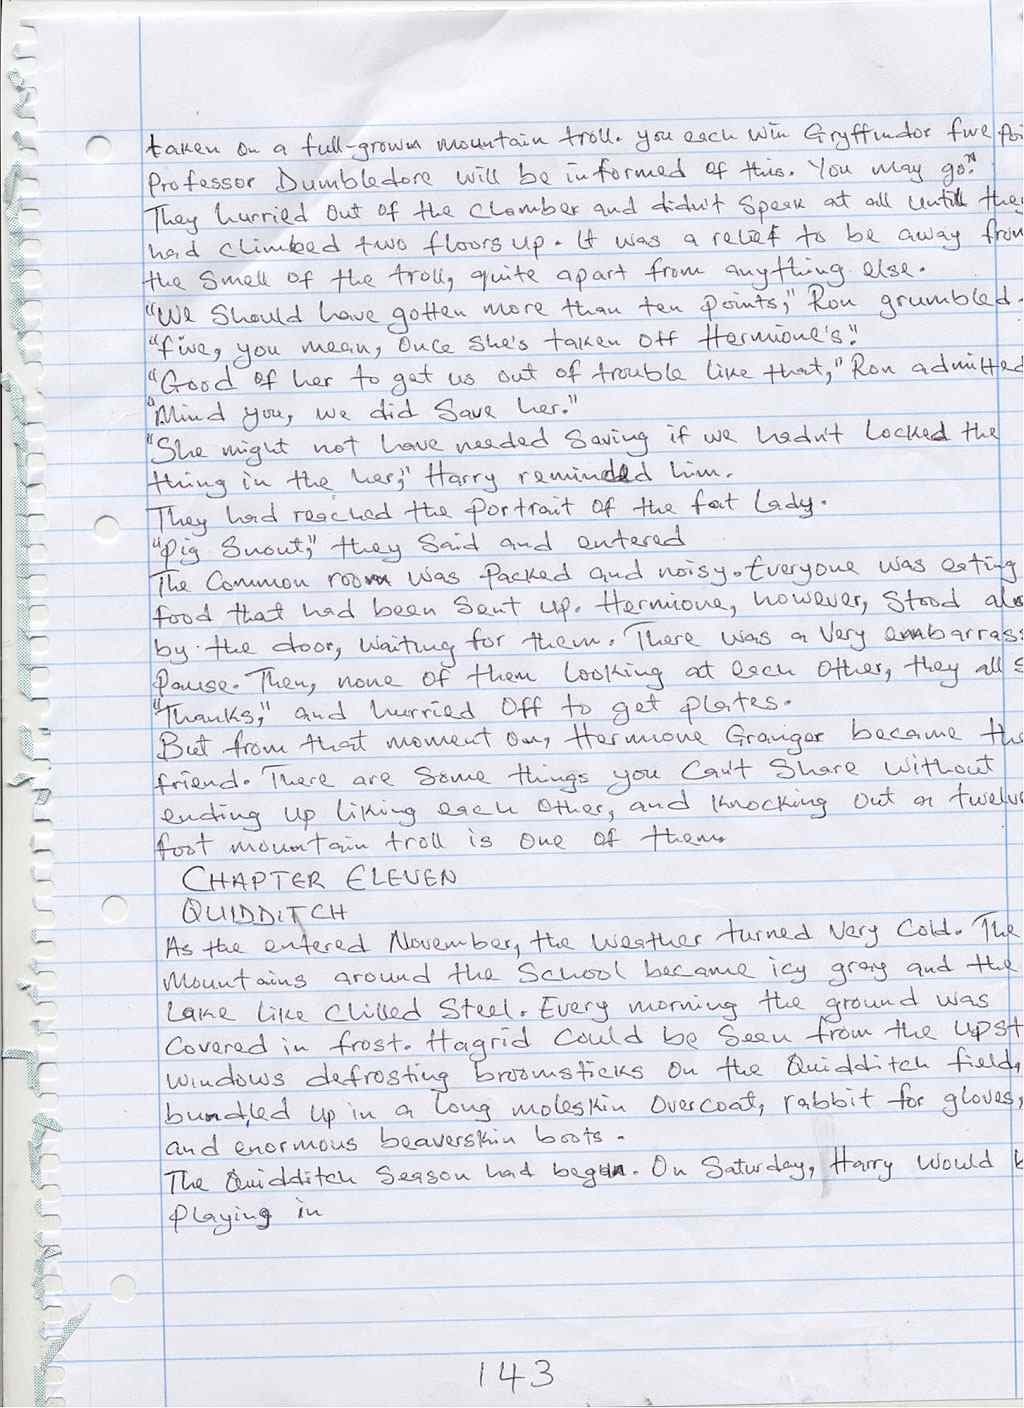 taken on a full-grown mountain troll. you each win Gryffindor five poi
Professor Dumbledore will be informed of this. You may go."
They hurried out of the chamber and didn't speak at all until they
had climbed two floors up. It was a relief to be away from
the smell of the troll, quite apart from anything else.
"We should have gotten more than ten points," Ron grumbled.
"five, you mean, once she's taken off Hermione's."
"Good of her to get us out of trouble like that," Ron admitted
"Mind you, we did save her."
"She might not have needed saving if we hadn't locked the
thing in the her," Harry reminded him.
They had reached the portrait of the fat lady.
"Pig snout," they said and entered
The common room was packed and noisy. Everyone was eating
food that had been sent up. Hermione, however, stood alo
by the door, waiting for them. There was a very embarrass
pause. Then, none of them looking at each other, they all s
"Thanks," and hurried off to get plates.
But from that moment on, Hermione Granger became the
friend. There are some things you can't share without
ending up liking each other, and knocking out a twelve
foot mountain troll is one of them.
CHAPTER ELEVEN
QUIDDITCH
As the entered November, the weather turned very cold. The
mountains around the school became icy gray and the
lake like chilled steel. Every morning the ground was
covered in frost. Hagrid could be seen from the upst
windows defrosting broomsticks on the Quidditch field,
bundled up in a long moleskin overcoat, rabbit for gloves,
and enormous beaverskin boots.
The Quidditch season had begun. On Saturday, Harry would b
playing in
143